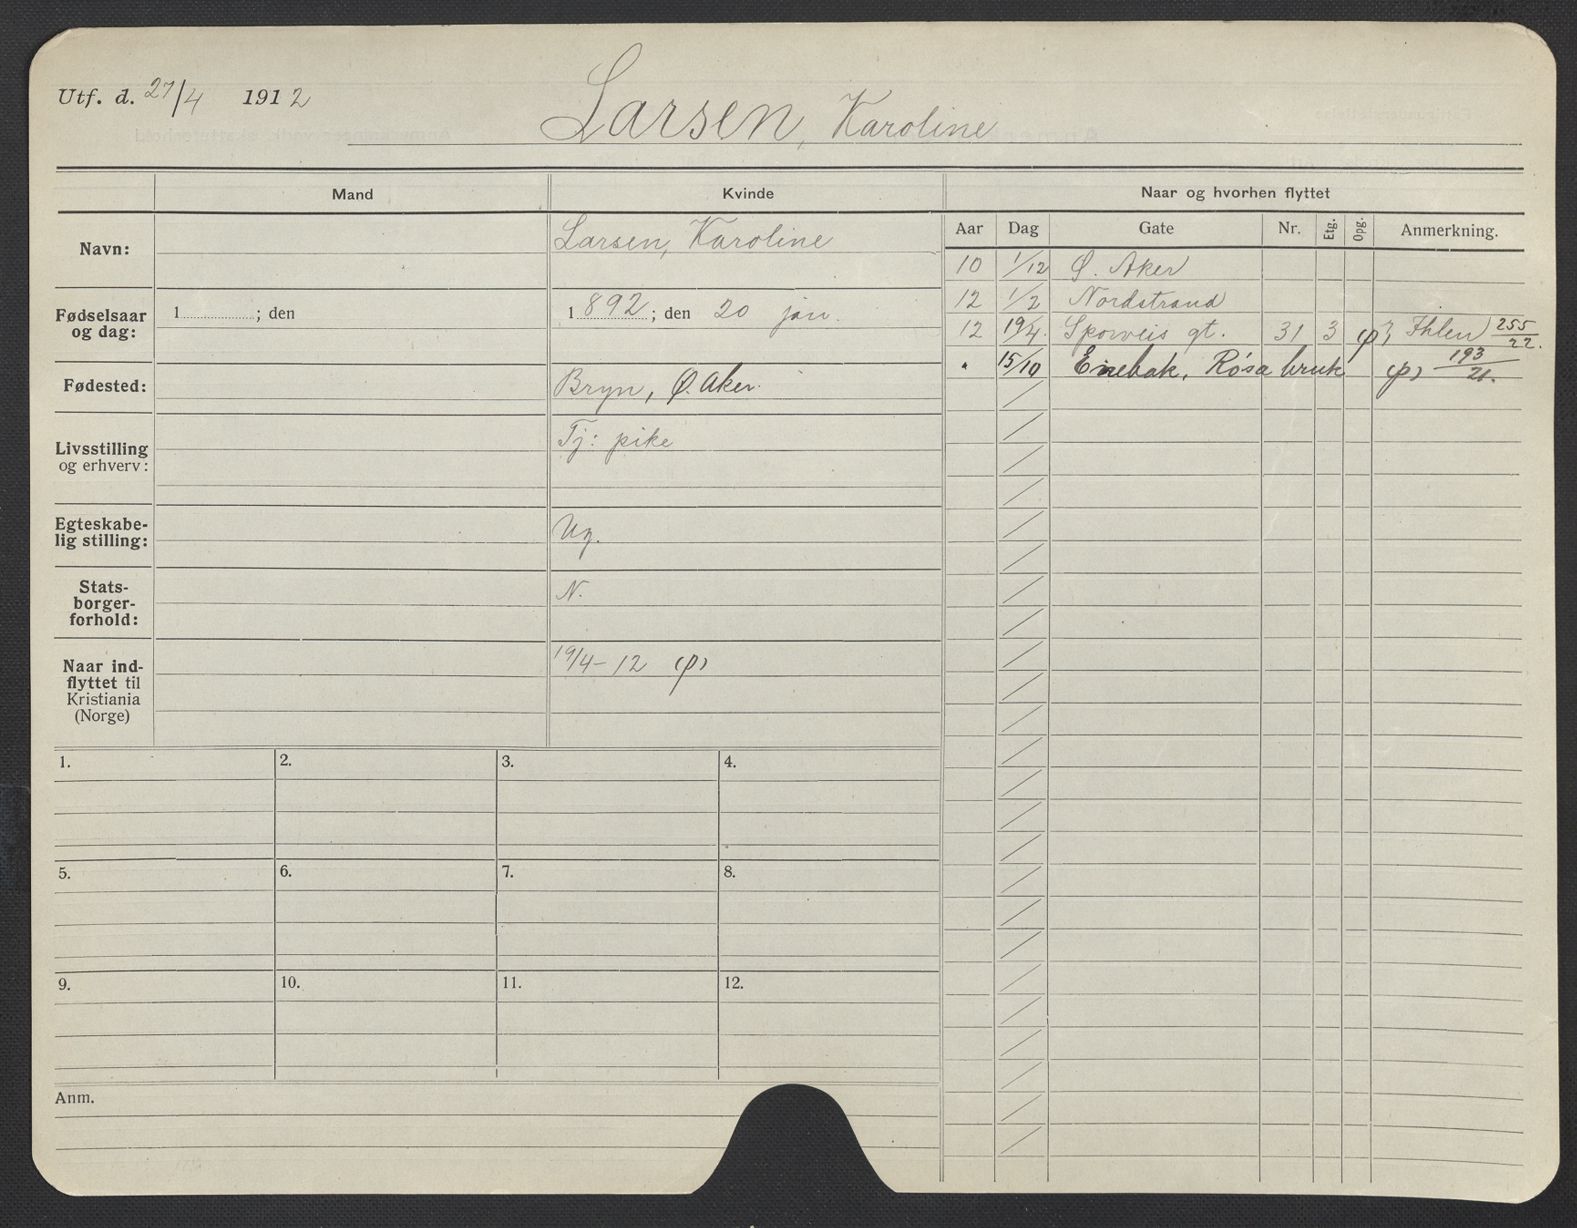 Utf. d. 27/4 1912
Larsen, Karoline
Mand Kvinde Naar og hvorhen flyttet
Navn: Larsen, Karoline
Fødselsaar og dag: 1 ; den 1892 ; den 20 jan.
Fødested: Bryn, Ø. Aker.
Livsstilling og erhverv: Tj: pike
Egteskabe-
lig stilling: Ug.
Stats-
borger-
forhold: N.
Naar ind-
flyttet til
Kristiania
(Norge) 19/4-12 (p)
Aar Dag Gate Nr. Etg. Opg. Anmerkning.
10 1/12 Ø. Aker
12 1/2 Nordstrand
12 19/4. Sporveis gt. 31 3 Ihlen 255/22.
" 15/10 Enebak, Rösa bruk (p) 193/21.
1. 2. 3. 4.
5. 6. 7. 8.
9. 10. 11. 12.
Anm.